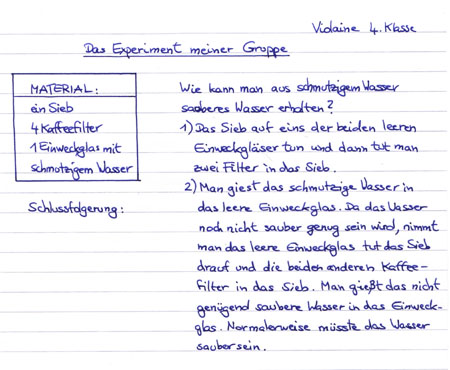 Violaine 4. Klasse
Das Experiment meiner Gruppe
MATERIAL:
ein Sieb
4 Kaffeefilter
1 Einweckglas mit
schmotzigem Wasser
Schlussfolgerung:
Wie kann man aus schmutzigem Wasser
sauberes Wasser erhalten?
1) Das Sieb auf eins der beiden leeren
Einweckgläser tun und dann tut man
zwei Filter in das Sieb.
2) Man giest das schmutzige Wasser in
das leere Einweckglas. Da das Wasser
noch nicht sauber genug sein wird, nimmt
man das leere Einweckglas tut das Sieb
drauf und die beiden anderen Kaffee-
filter in das Sieb. Man gießt das nicht
genügend saubere Wasser in das Einweck-
glas. Normalerweise müsste das Wasser
sauber sein.